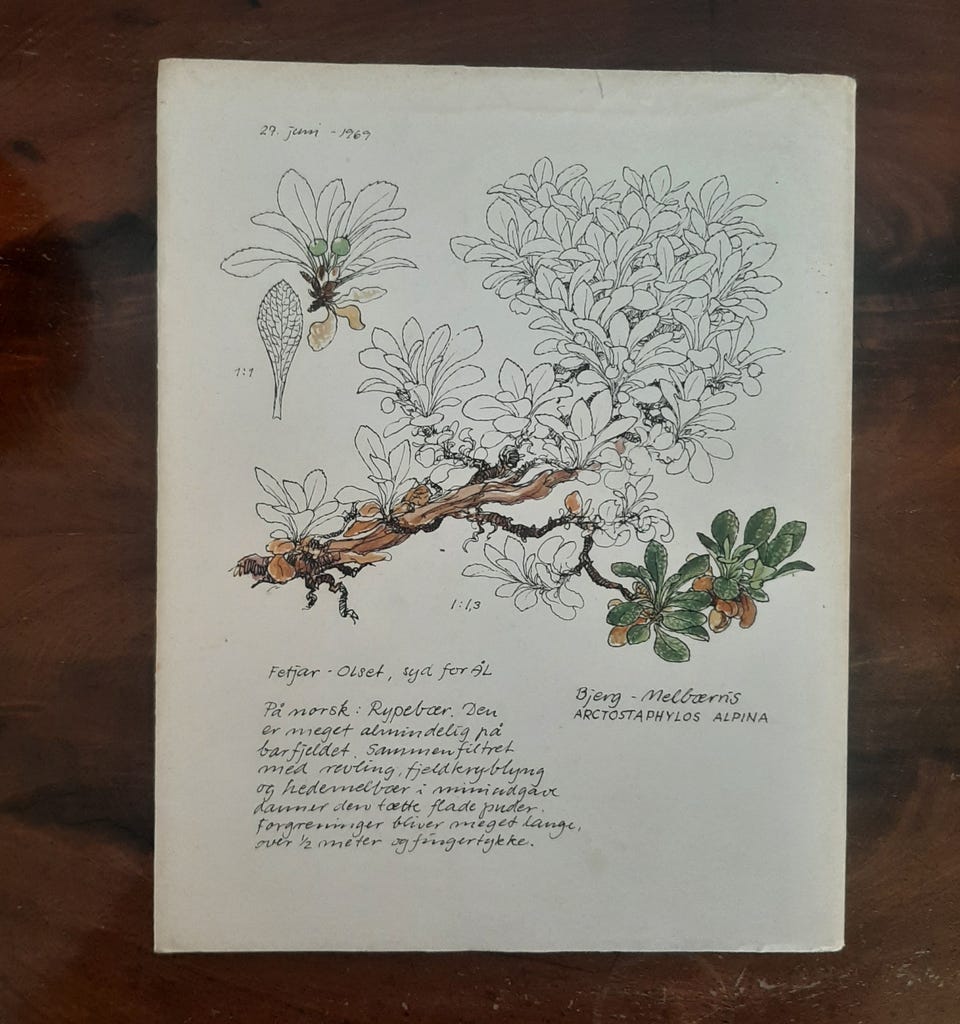 27. juni - 1969
1:1
1:1,3
Fetjar - Olset, syd for ÅL
På norsk: Rypebær. Den
er meget almindelig på
barfjeldet. Sammenfiltret
med revling, fjeldkryblyng
og hedemelbær i miniudgave
danner den tætte flade puder.
Forgreninger bliver meget lange,
over ½ meter og fingertykke.
Bjerg - Melbærris
ARCTOSTAPHYLOS ALPINA